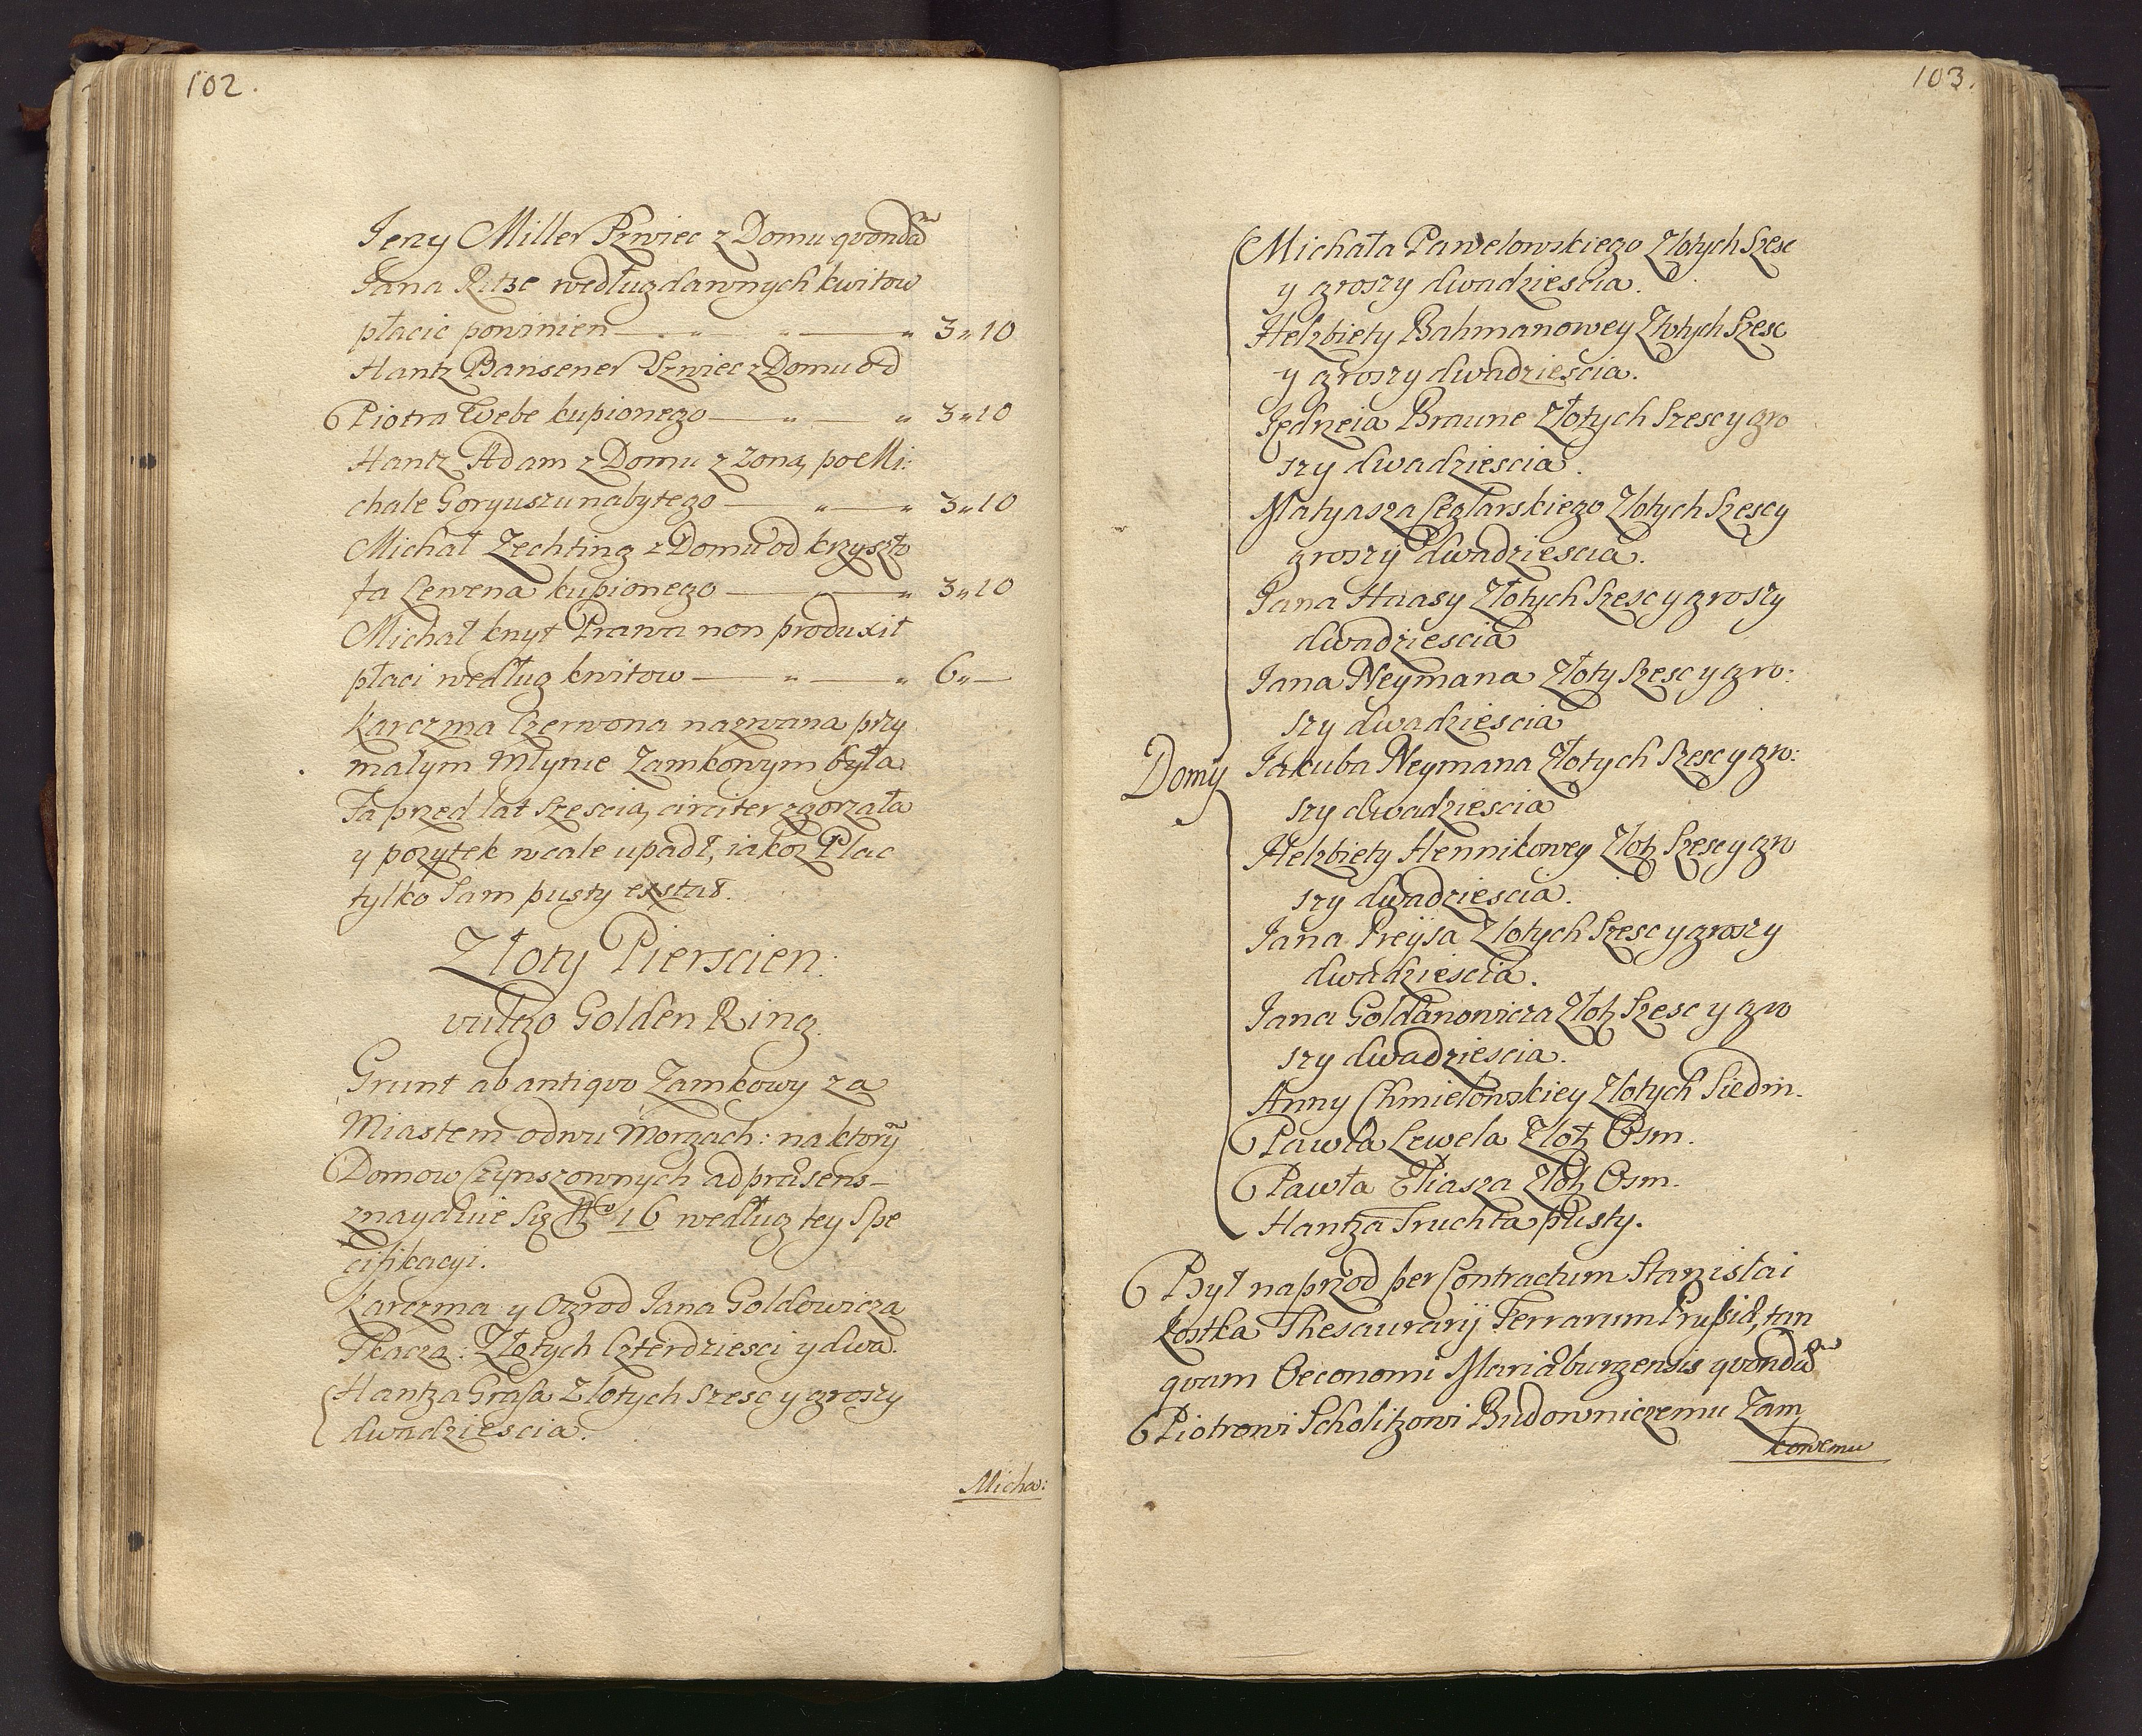 102.
Jerzy Miller Szwiec z Domu qvondã
Jana Ritze według dawnych kwitow
płacic powinien — „ — „ 3„10
Hantz Bansener Szwiec z Domu od
Piotra Webe kupionego — „ — „ 3„10
Hantz Adam z Domu z Zoną po Mi:
chale Goryuszu nabytego — „ — „ 3„10
Michał Zechting z Domu od krzyszto
fa Lewena kupionego — „ 3„10
Michał knyt Prawa non produxit
płaci według kwitow — „ — „ 6„—
karczma Czerwona nazwana przy
małym Młynie Zamkowym była
Ta przed lat Szescią circiter zgorzała
y pozytek wcale upadł, iakoz Plac
tylko Sam pusty exstat.
Złoty Pierscien.
vulgo Golden Ring.
Grunt ab antiqvo Zamkowy za
Miastem o dwu Morgach: na ktorỹ
Domow Czynszownych ad præsens
znayduie się No 16 według tey Spe
cifikacyi.
karczma y Ogrod Jana Goldowicza
Tkacza: Złotych Czterdziesci y dwa.
Hantza Grasa Złotych szesc y groszy
dwadziescia.
Micha:
103.
Michała Pawelowskiego Złotych Szesc
y groszy dwadziescia.
Helzbiety Bahmanowey Złotych Szesc
y groszy dwadziescia.
Jędrzeia Braune Złotych Szesc y gro
szy dwadziescia.
Matyasza Ceglarskiego Złotych Szesc y
groszy dwadziescia.
Jana Haasy Złotych Szesc y groszy
dwadziescia
Jana Neymana Złoty Szesc y gro:
szy dwadziescia
Domy Jakuba Neymana Złotych Szesc y gro:
szy dwadziescia
Helzbiety Hennikowey Złot Szesc y gro
szy dwadziescia.
Jana Preysa Złotych Szesc y groszy
dwadziescia.
Jana Goldanowicza Złot Szesc y gro
szy dwadziescia.
Anny Chmielowskiey Złotych Siedm.
Pawła Lewela Złot Osm.
Pawła Eliasza Złot Osm.
Hantza Truchta pusty.
Był naprzod per Contractum Stanislai
kostka Thesaurarij Terrarum Prussiæ, tan
qvam Oeconomi Mariæburgensis qvondã
Piotrowi Scholitzowi Budowniczemu Zam
kowemu